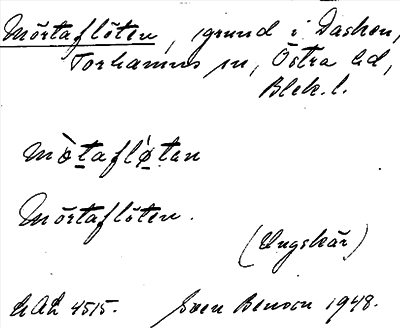 Mörtaflöten, grund i Dasken,
Torhamns sn, Östra hd,
Blek. l.
mò̱tafló̱tan
Mörtaflöten.
(Ungskär)
LAL 4515. Sven Benson 1948.